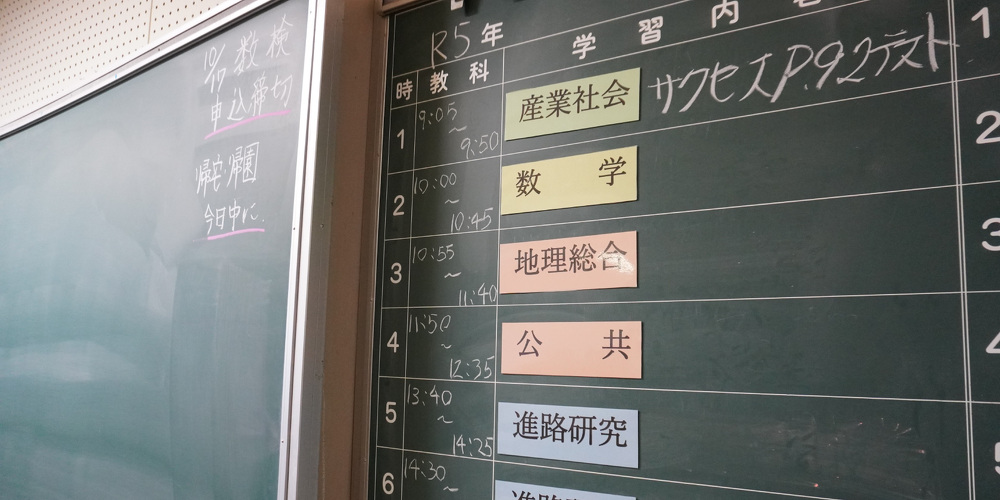 10/17 数検
申込締切
帰宅・帰園
今日中に.
R5年 学習内容
時 教科
1 9:05～9:50 産業社会 サクセスP.92テスト
2 10:00～10:45 数学
3 10:55～11:40 地理総合
4 11:50～12:35 公共
5 13:40～14:25 進路研究
6 14:30～
1
2
3
4
5